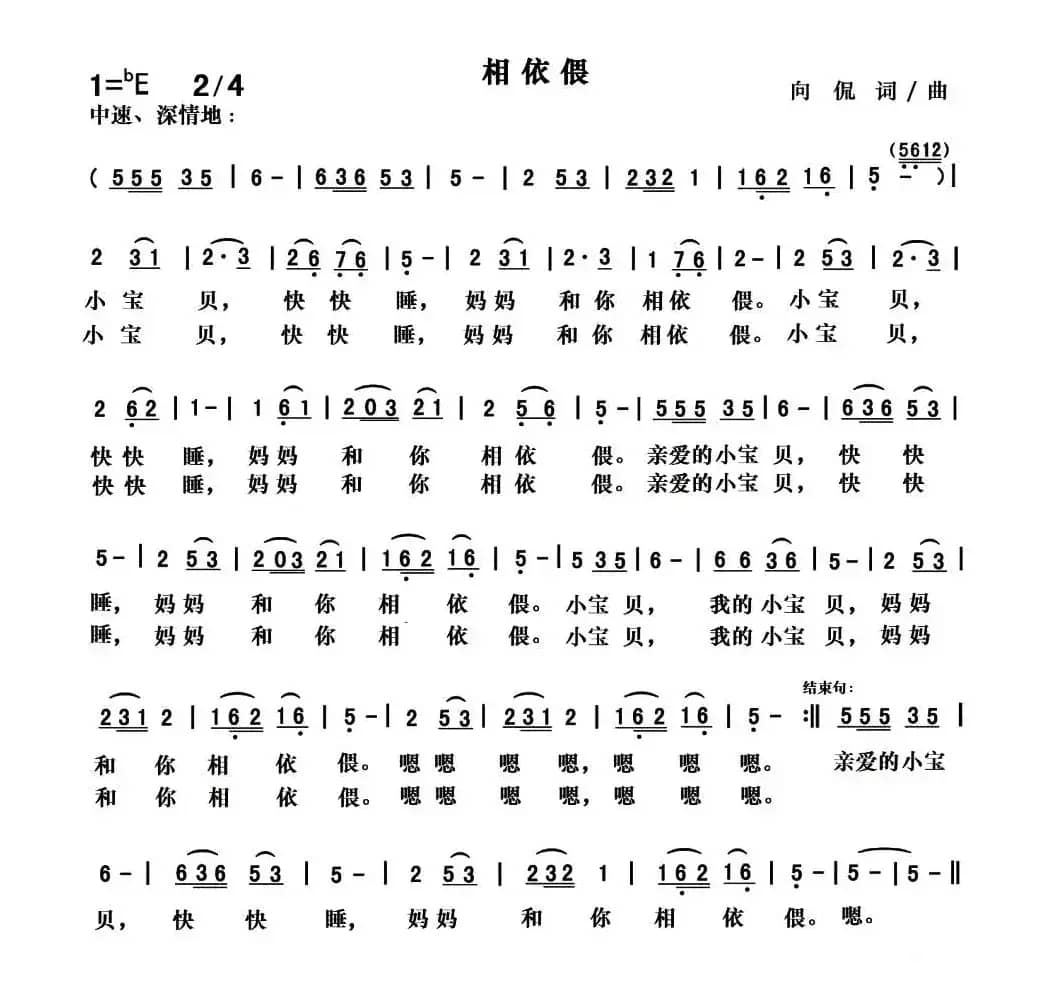 相依偎
1=ᵇE 2/4
向 侃 词 / 曲
中速、深情地：
(5612)
( 555 35 | 6 - | 636 53 | 5 - | 2 53 | 232 1 | 162 16 | 5 - )|
2 31 | 2·3 | 26 76 | 5 - | 2 31 | 2·3 | 1 76 | 2 - | 2 53 | 2·3 |
小宝 贝， 快 快 睡， 妈妈 和你 相依 偎。 小宝 贝，
小宝 贝， 快 快 睡， 妈妈 和你 相依 偎。 小宝 贝，
2 62 | 1 - | 1 61 | 203 21 | 2 56 | 5 - | 555 35 | 6 - | 636 53 |
快快 睡， 妈妈 和 你 相依 偎。 亲爱的小宝 贝， 快 快
快快 睡， 妈妈 和 你 相依 偎。 亲爱的小宝 贝， 快 快
5 - | 2 53 | 203 21 | 162 16 | 5 - | 5 35 | 6 - | 66 36 | 5 - | 2 53 |
睡， 妈妈 和 你 相 依 偎。 小宝 贝， 我的 小宝 贝， 妈妈
睡， 妈妈 和 你 相 依 偎。 小宝 贝， 我的 小宝 贝， 妈妈
结束句：
231 2 | 162 16 | 5 - | 2 53 | 231 2 | 162 16 | 5 - :‖ 555 35 |
和 你 相 依 偎。 嗯 嗯 嗯 嗯， 嗯 嗯 嗯。 亲爱的小宝
和 你 相 依 偎。 嗯 嗯 嗯 嗯， 嗯 嗯 嗯。
6 - | 636 53 | 5 - | 2 53 | 232 1 | 162 16 | 5 - | 5 - | 5 - ‖
贝， 快 快 睡， 妈妈 和 你 相 依 偎。 嗯。